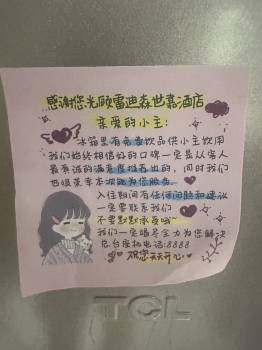 感谢您光顾雷迪森世嘉酒店
亲爱的小主:
冰箱里有免费饮品供小主饮用
我们始终相信好的口碑一定是从客人
最真诚的满意度投着出的,同时我们
也很荣幸本次能为您服务
入住期间有任何问题和建议
一定要联系我们
不要默默承受哦~
我们一定竭尽全力为您解决
总台座机电话:8888
祝您天天开心
TCL